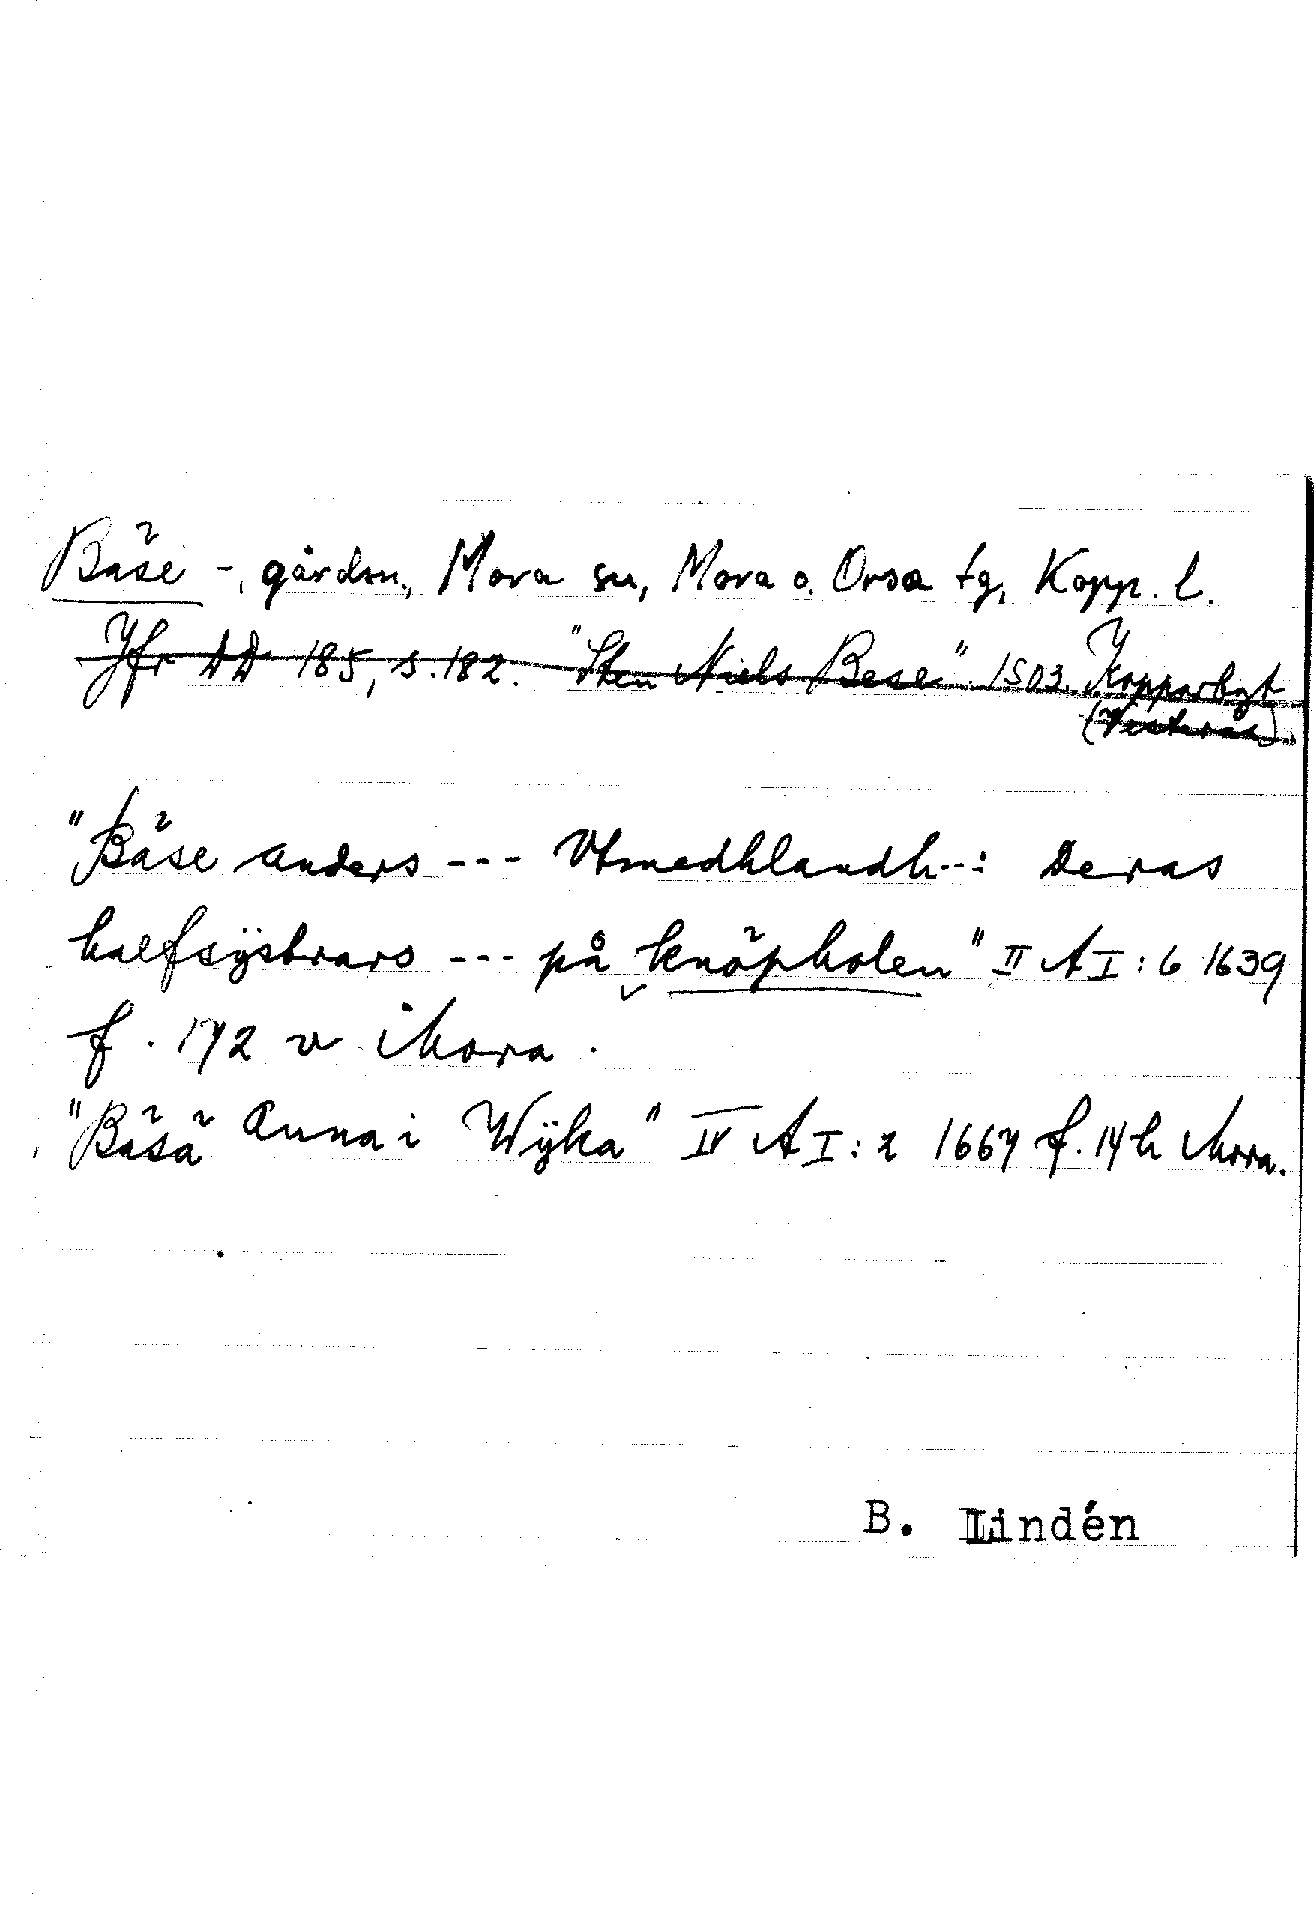 Bäse -, gårdsn., Mora sn, Mora o. Orsa tg, Kopp. l.
Jfr DD 185, s. 182. "Sten Niels Bese" 1503. Kopparbgt
(Västerås)
"Bäse anders --- Vtmedhlandh--: Deras
halfsÿstrars --- på knöpholen" II A I: 6 1639
f. 172 v Mora.
"Bäsä Anna i Wÿka" IV A I: 2 1667 f. 14 h Mora.
B. Lindén